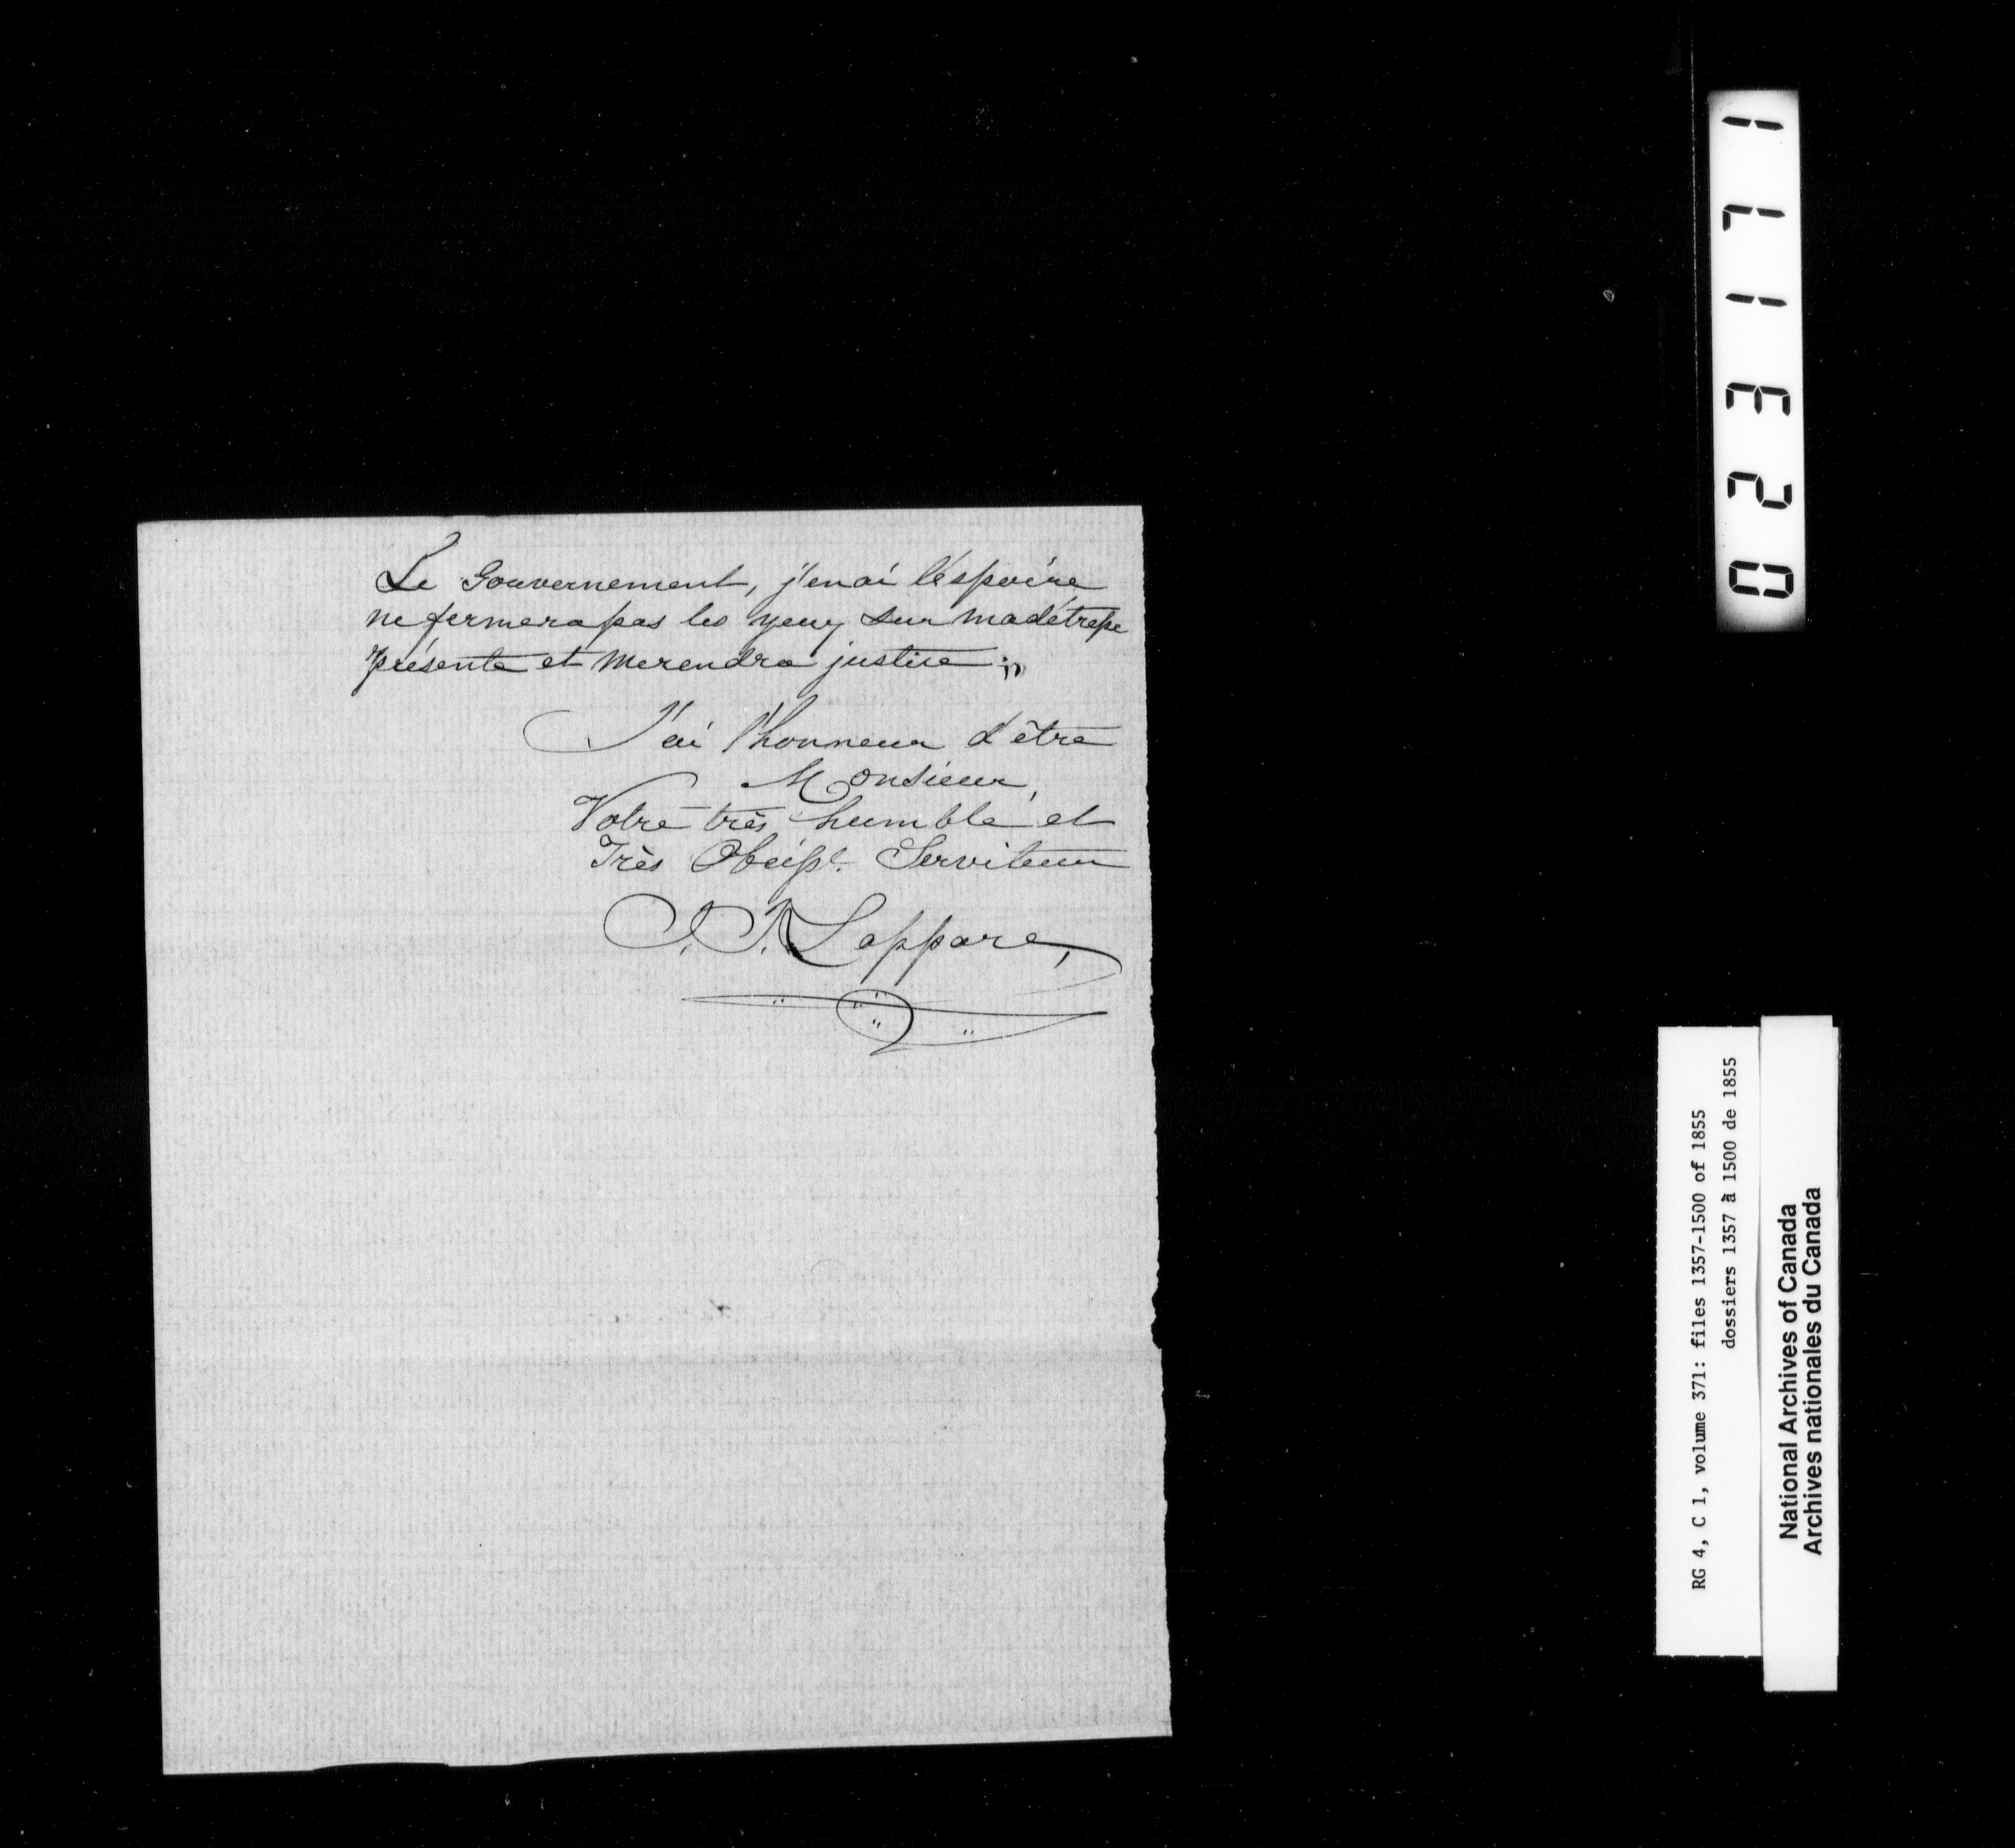 Le Gouvernement, j'en ai l'éspoire
ne fermera pas les yeux sur ma détresse
présente et me rendra justice;
J'ai l'honneur d'être
Monsieur,
Votre très humble et
Très Obéisst. Serviteur
Lappare,
023171
RG 4, C 1, volume 371: files 1357-1500 of 1855
dossiers 1357 à 1500 de 1855
National Archives of Canada
Archives nationales du Canada